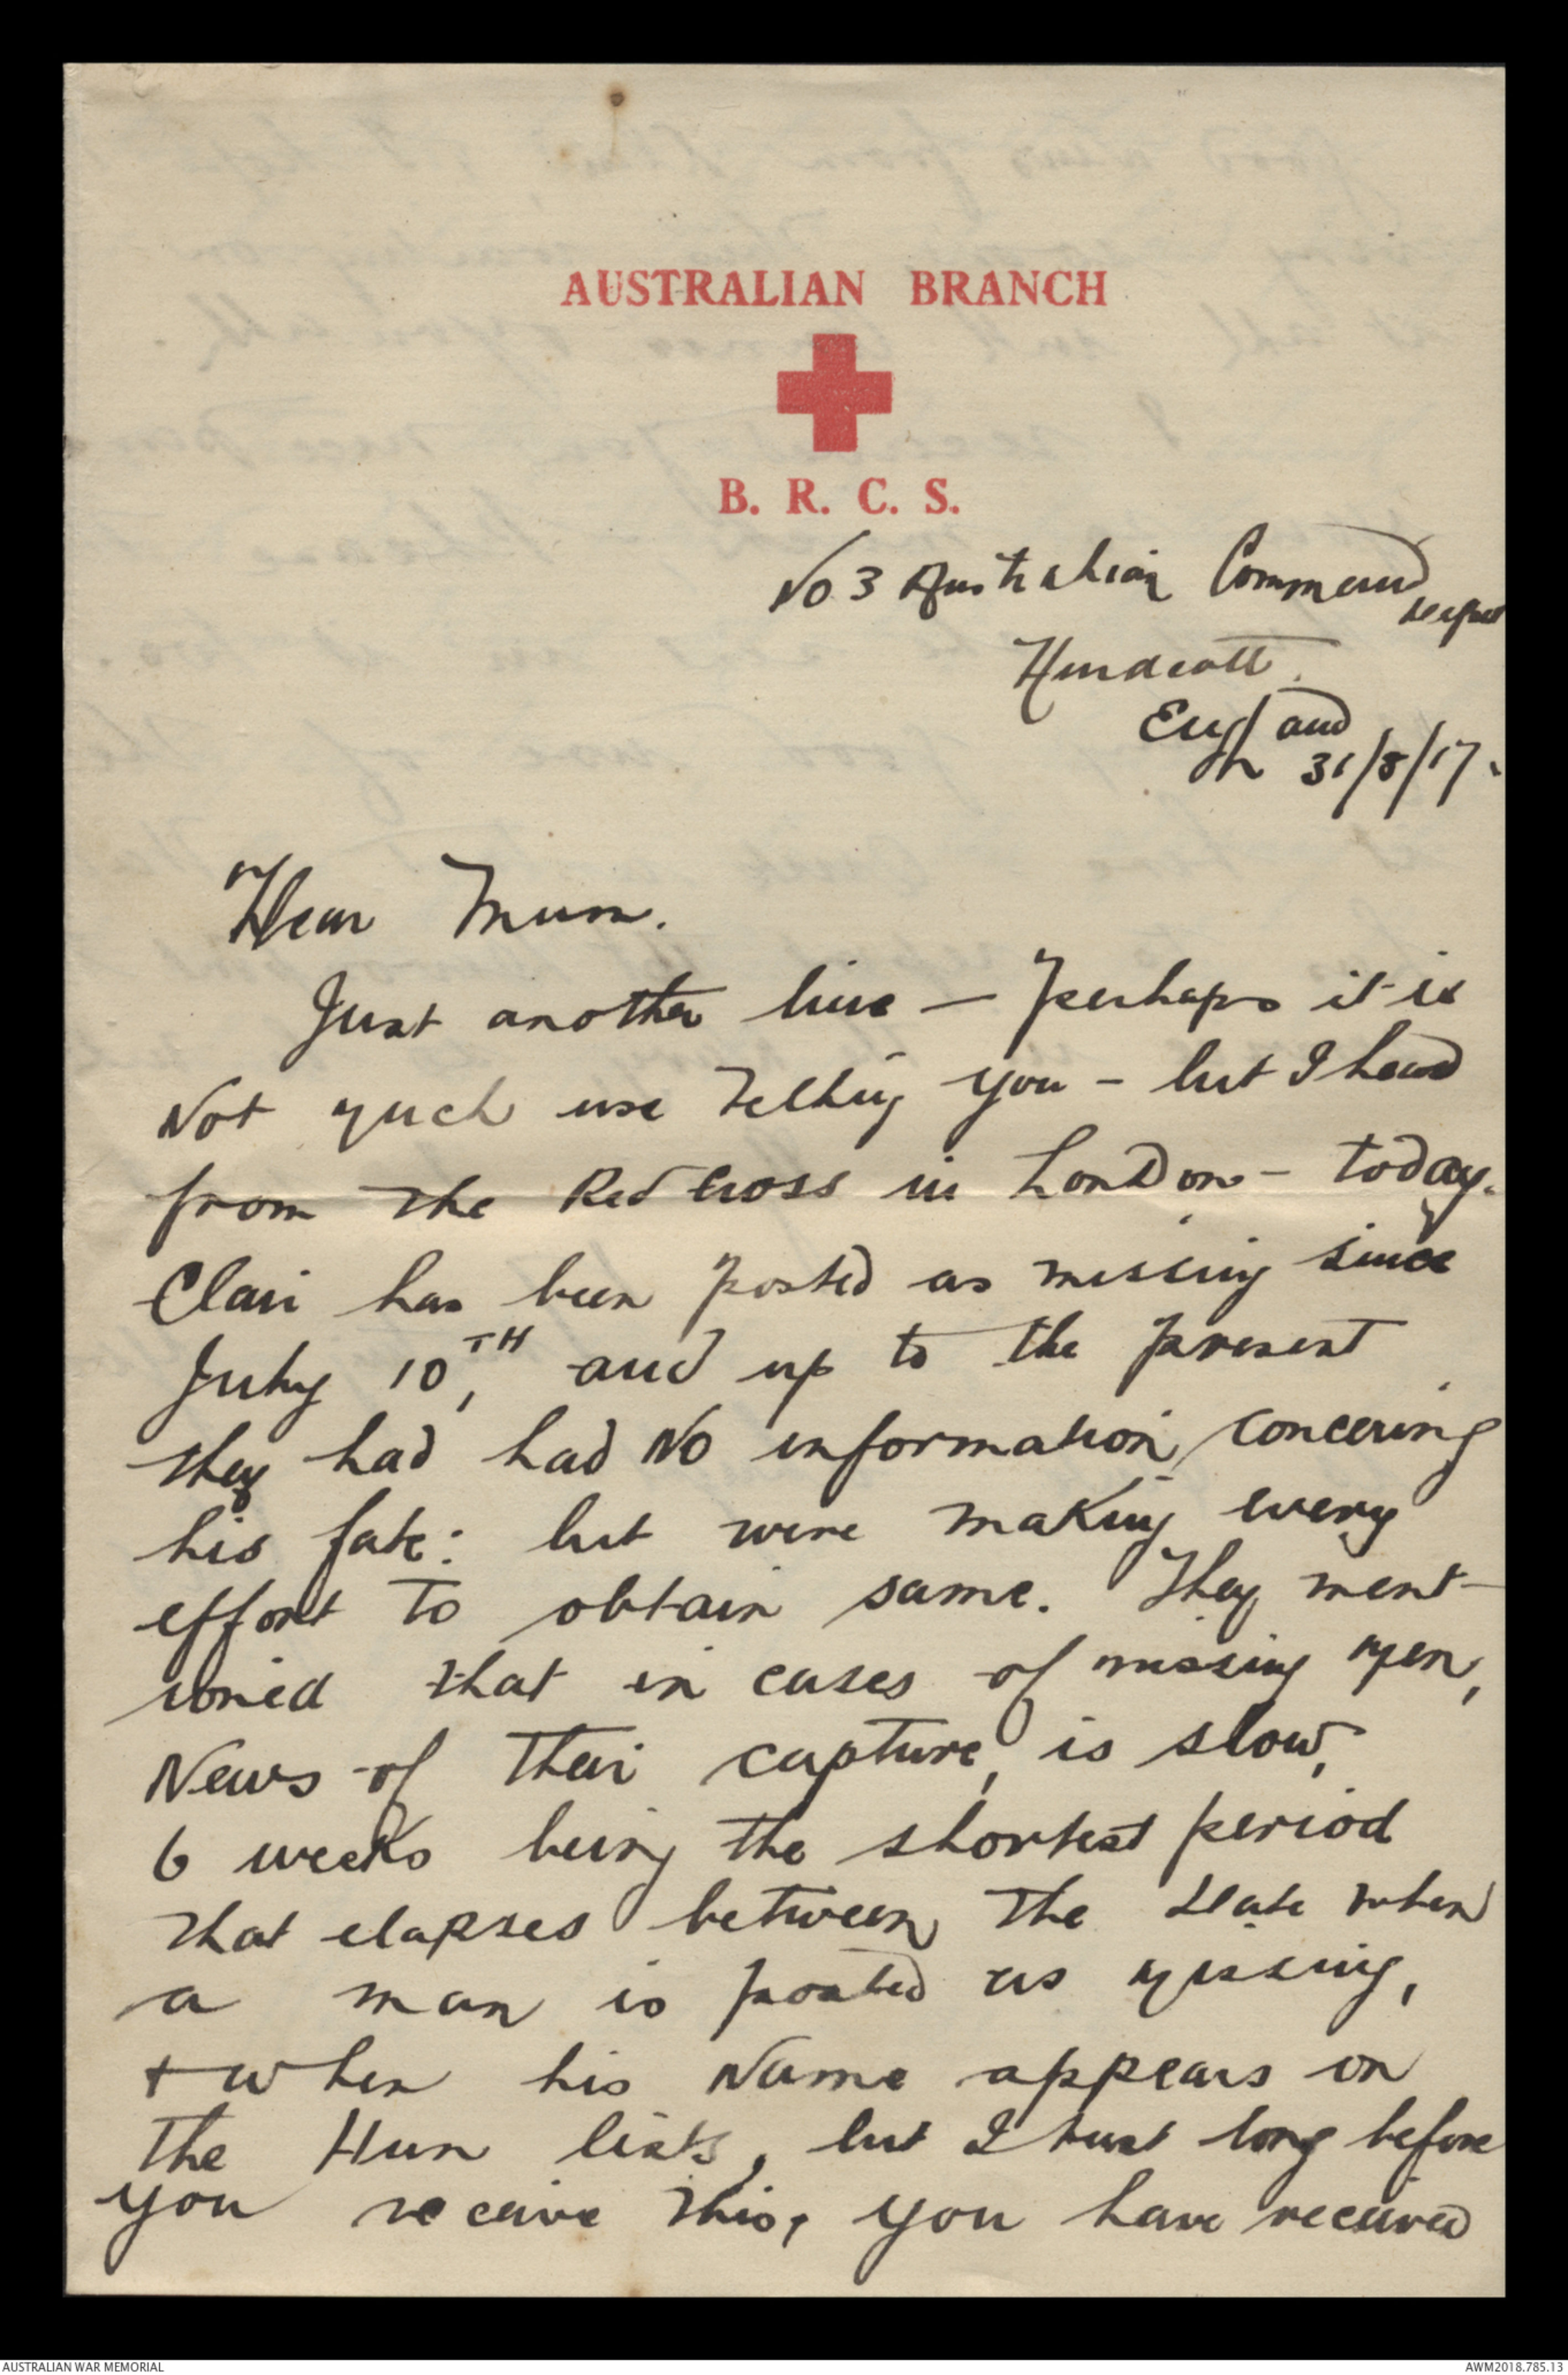 AUSTRALIAN BRANCH
B. R. C. S.
No 3 Australian Command
Depot
Hurdcott.
England
31/8/17.
Dear Mum.
Just another line - perhaps it is
Not much use telling you - but I heard
from the Red Cross in London - today.
Clair has been posted as missing since
July 10TH, and up to the present
they had had No information, concering
his fate: but were making every
effort to obtain same. They ment-
ioned that in cases of missing men,
News of their capture, is slow,
6 weeks being the shortest period
that elapses between the date when
a man is posted as missing,
+ when his Name appears on
the Hun lists, but I trust long before
you receive this, you have received
AUSTRALIAN WAR MEMORIAL
AWM2018.785.13